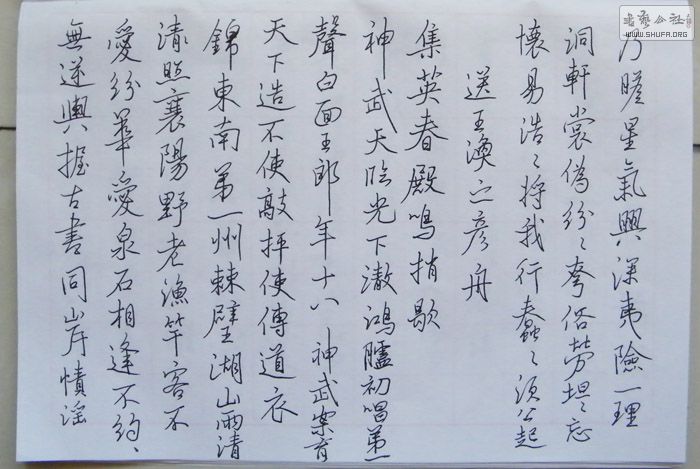 书艺公社
WWW.SHUFA.ORG
乃瞻星氣興深夷險一理
洞軒裳偽紛〻夸俗勞坦〻忘
懷易浩〻將我行蠢〻須公起
送王渙之彥舟
集英春殿鳴捎歇
神武天臨光下澈鴻臚初唱第一
聲白面王郎年十八神武樂育
天下造不使敲枰使傳道衣
錦東南第一州棘璧湖山兩清
清照襄陽野老漁竿客不
愛紛華愛泉石相逢不約、
無逆輿握古書同岸幘淫